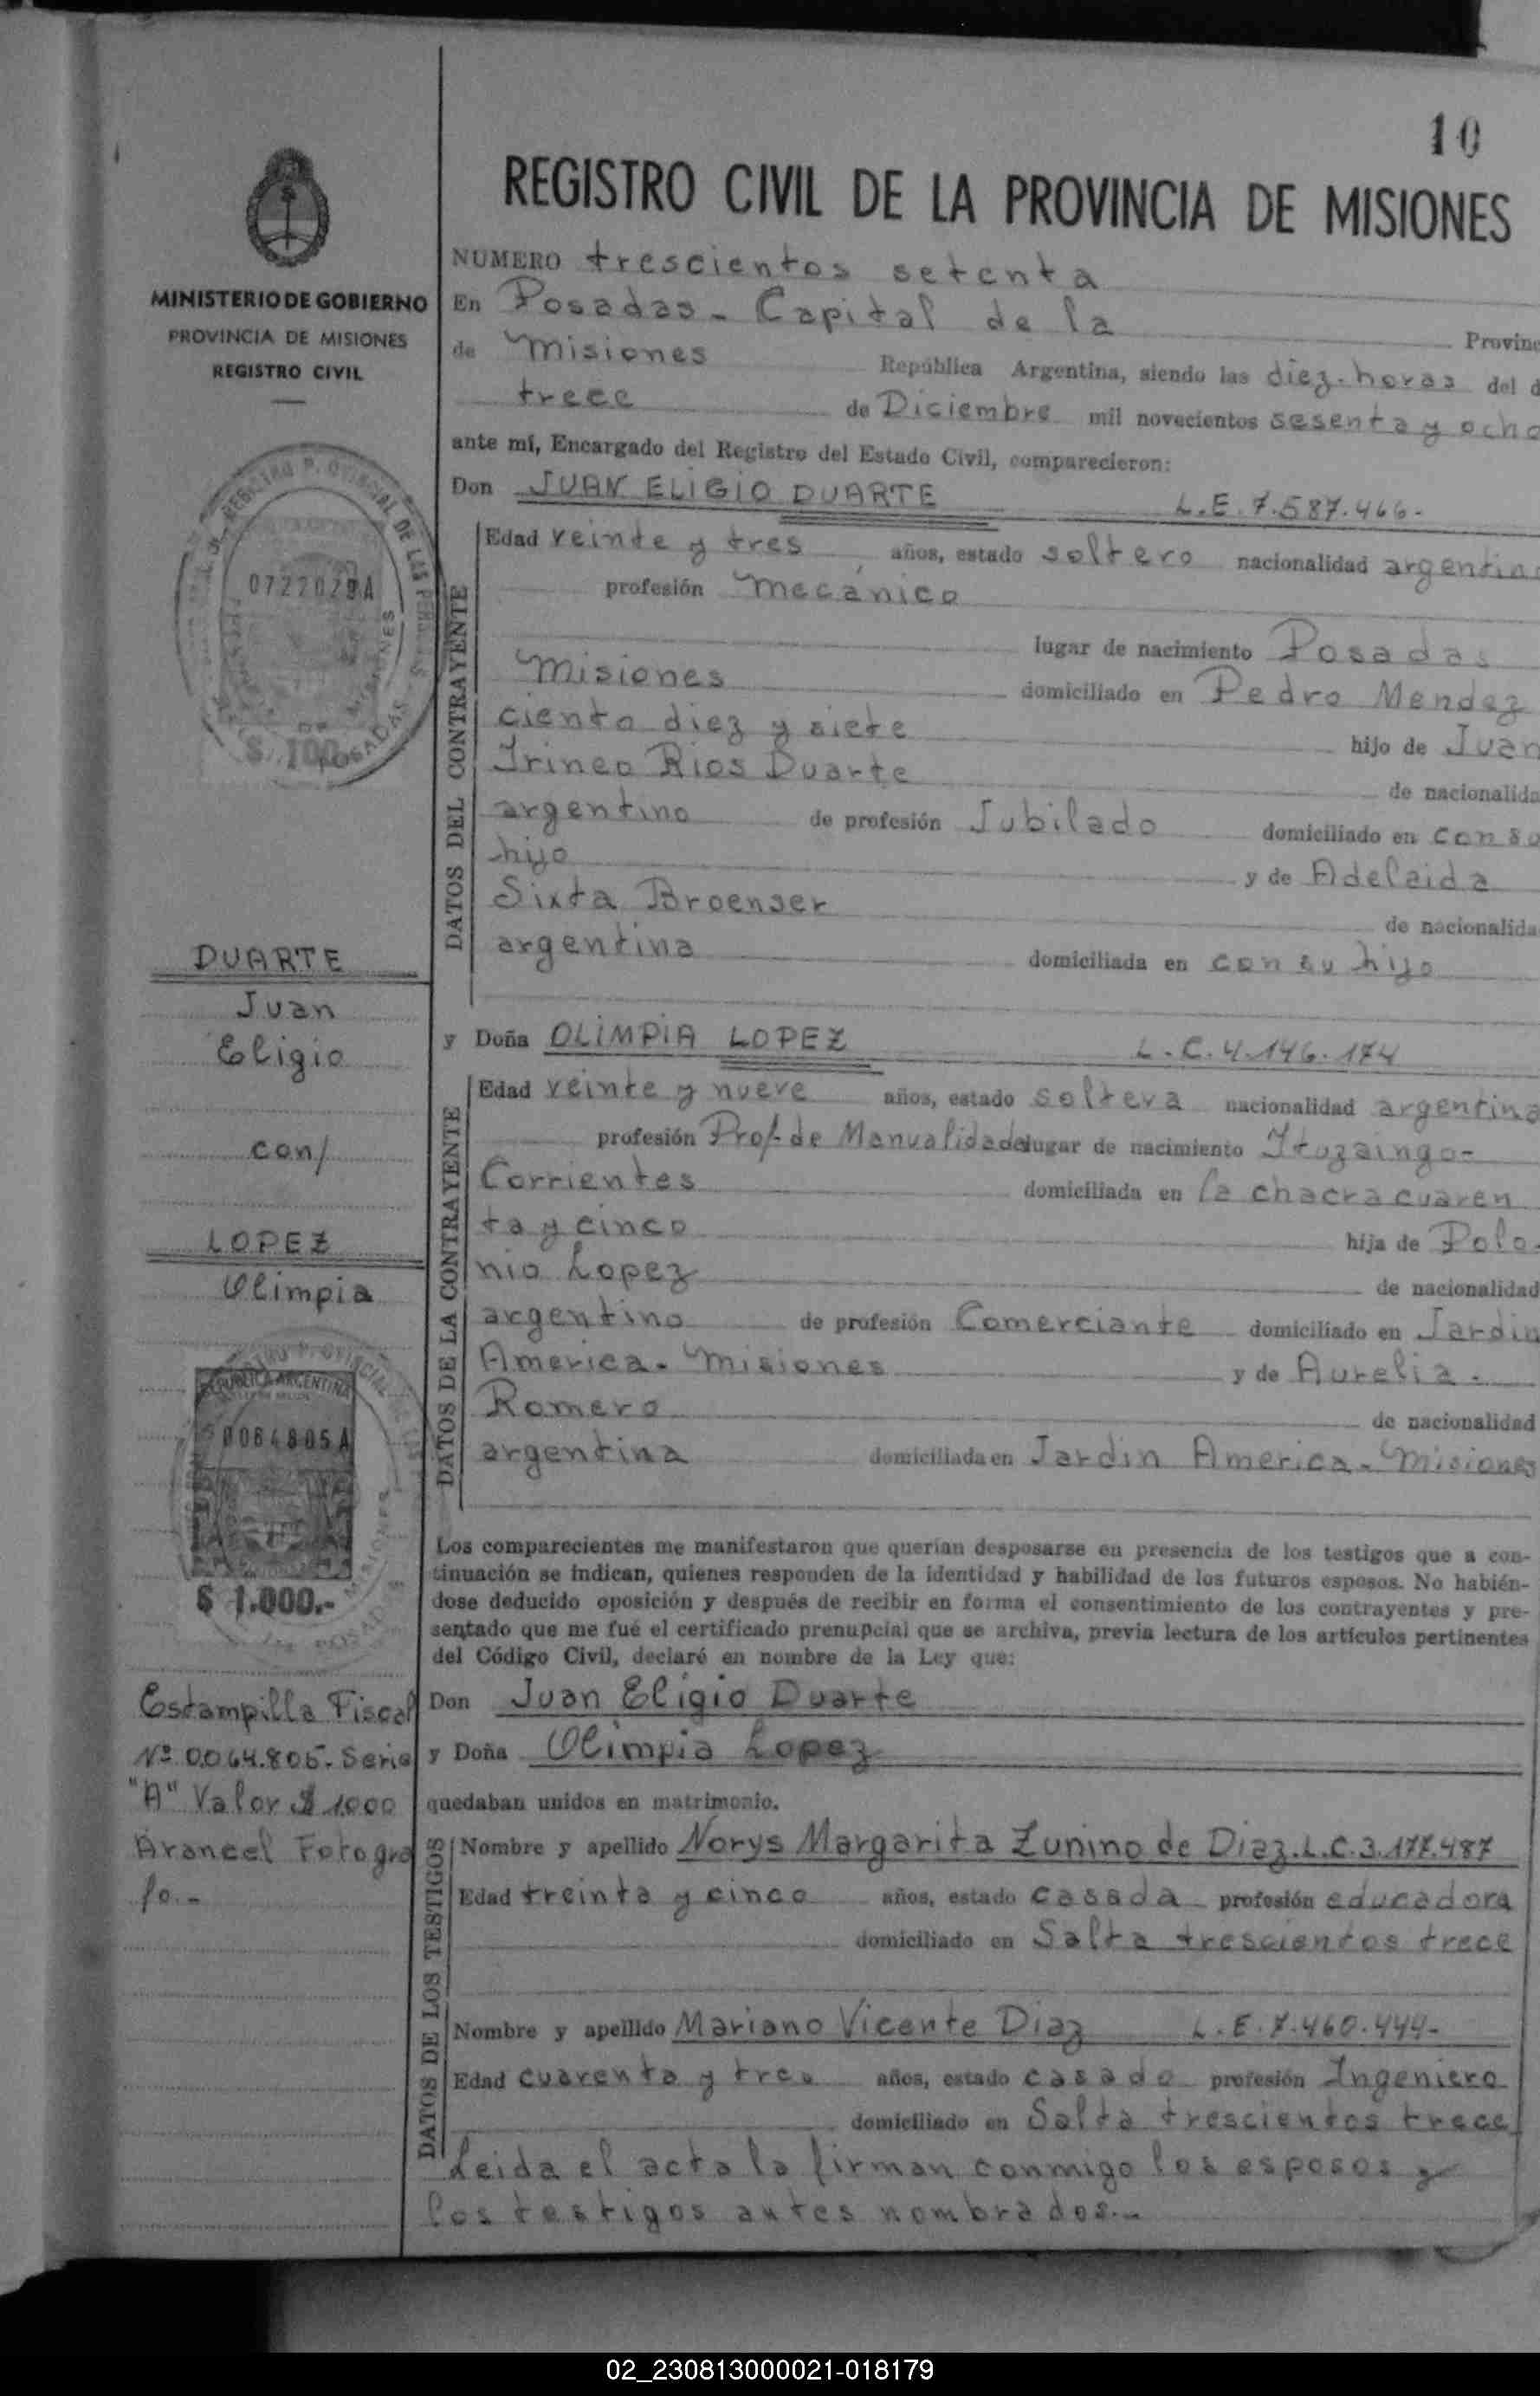 10
REGISTRO CIVIL DE LA PROVINCIA DE MISIONES
MINISTERIO DE GOBIERNO
PROVINCIA DE MISIONES
REGISTRO CIVIL
0722029A
$ 100
DUARTE
Juan
Eligio
con/
LOPEZ
Olimpia
REPUBLICA ARGENTINA
0064805A
$ 1.000.-
Estampilla Fiscal
Nº 0064.805. Serie
"A" Valor $ 1000
Arancel Fotogra
fo.-
NUMERO trescientos setenta
En Posadas - Capital de la Provinc
de Misiones República Argentina, siendo las diez horas del d
trece de Diciembre mil novecientos sesenta y ocho
ante mí, Encargado del Registro del Estado Civil, comparecieron:
Don JUAN ELIGIO DUARTE L.E. 7.587.466.-
DATOS DEL CONTRAYENTE
Edad veinte y tres años, estado soltero nacionalidad argentino
profesión mecánico
lugar de nacimiento Posadas
Misiones domiciliado en Pedro Mendez
ciento diez y siete hijo de Juan
Irineo Rios Duarte de nacionalida
argentino de profesión Jubilado domiciliado en con su
hijo y de Adelaida
Sixta Broenser de nacionalida
argentina domiciliada en con su hijo
y Doña OLIMPIA LOPEZ L.C. 4.146.174
DATOS DE LA CONTRAYENTE
Edad veinte y nueve años, estado soltera nacionalidad argentina
profesión Prof. de Manualidades lugar de nacimiento Ituzaingo-
Corrientes domiciliada en la chacra cuaren
ta y cinco hija de Polo-
nio Lopez de nacionalidad
argentino de profesión Comerciante domiciliado en Jardin
America - Misiones y de Aurelia.
Romero de nacionalidad
argentina domiciliada en Jardin America - Misiones
Los comparecientes me manifestaron que querían desposarse en presencia de los testigos que a con-
tinuación se indican, quienes responden de la identidad y habilidad de los futuros esposos. No habién-
dose deducido oposición y después de recibir en forma el consentimiento de los contrayentes y pre-
sentado que me fué el certificado prenupcial que se archiva, previa lectura de los artículos pertinentes
del Código Civil, declaré en nombre de la Ley que:
Don Juan Eligio Duarte
y Doña Olimpia Lopez
quedaban unidos en matrimonio.
DATOS DE LOS TESTIGOS
Nombre y apellido Norys Margarita Zunino de Diaz. L.C. 3.177.487
Edad treinta y cinco años, estado casada profesión educadora
domiciliado en Salta trescientos trece
Nombre y apellido Mariano Vicente Diaz L.E. 7.460.444-
Edad cuarenta y tres años, estado casado profesión Ingeniero
domiciliado en Salta trescientos trece
Leida el acta la firman conmigo los esposos y
los testigos antes nombrados.-
02_230813000021-018179